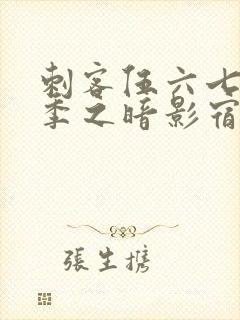 刺客伍六七
季之暗影宿
張生携